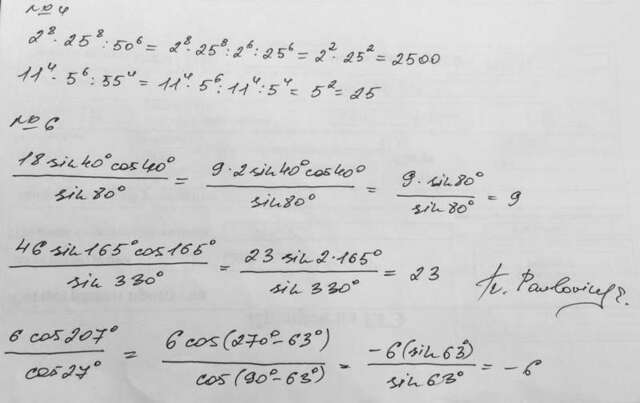 № 4
2⁸·25⁸:50⁶= 2⁸·25⁸:2⁶:25⁶= 2²·25²= 2500
11⁴·5⁶:55⁴= 11⁴·5⁶:11⁴:5⁴= 5²= 25
№ 6
18 sin40°cos40° / sin80° = 9·2sin40°cos40° / sin80° = 9·sin80° / sin80° = 9
46 sin165°cos165° / sin 330° = 23 sin2·165° / sin 330° = 23
6 cos207° / cos27° = 6 cos(270°-63°) / cos(90°-63°) = -6(sin63°) / sin63° = -6